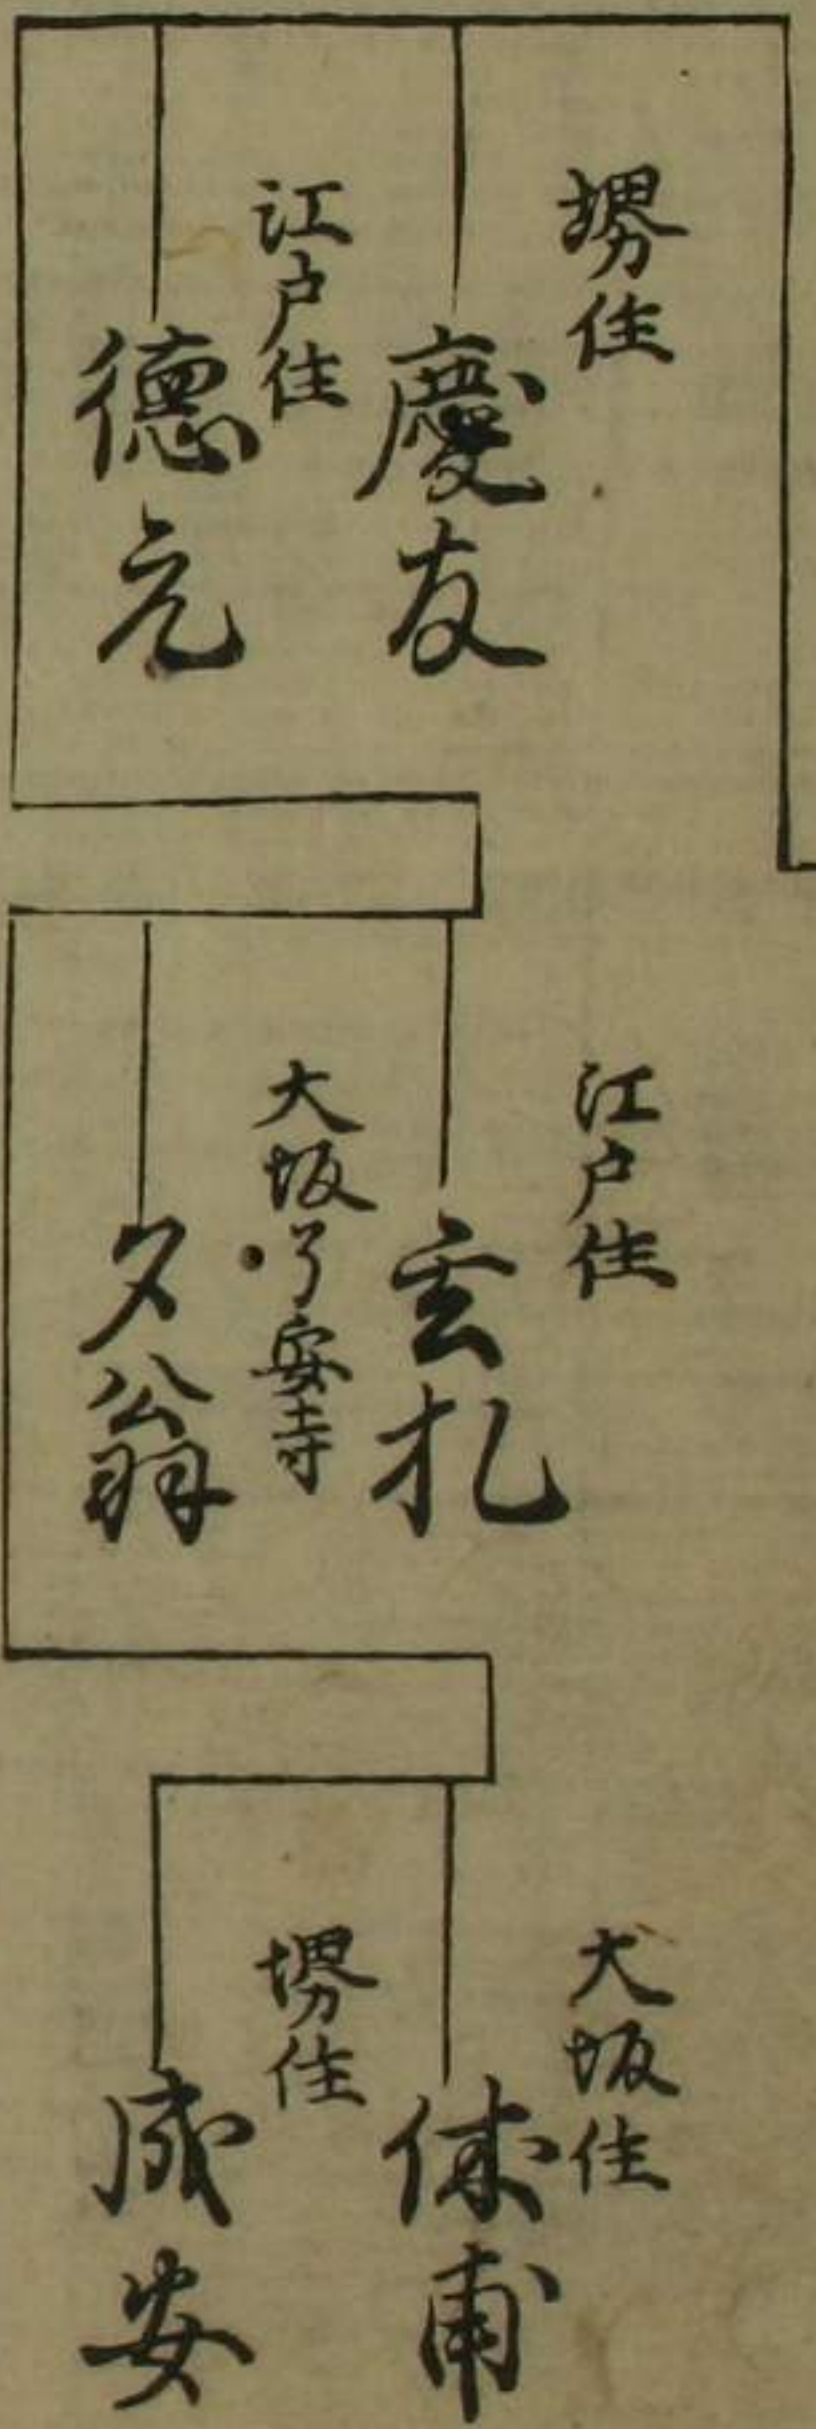 堺住
慶友
江戸住
德元
江戸住
玄札
大坂了安寺
夕翁
大坂住
休甫
堺住
成安